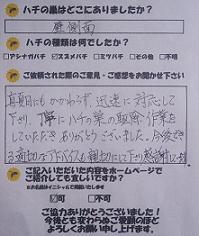 ハチの巣はどこにありましたか？
壁側面
ハチの種類は何でしたか？
□アシナガバチ ☑スズメバチ □ミツバチ □その他 □不明
ご依頼された際のご意見・ご感想をお聞かせ下さい
真夏日にもかかわらず、迅速に対応して
下り、丁寧にハチの巣の駆除作業を
していただきありがとうございました。今後でき
る適切なアドバイスも親切にして下り感謝して
ご記入いただいた内容をホームページで
ご紹介しても宜しいですか？
※お名前はイニシャルで掲載いたします
☑可 □不可
ご協力ありがとうございました！
今後とも変わらぬご愛顧のほど
よろしくお願い申し上げます。